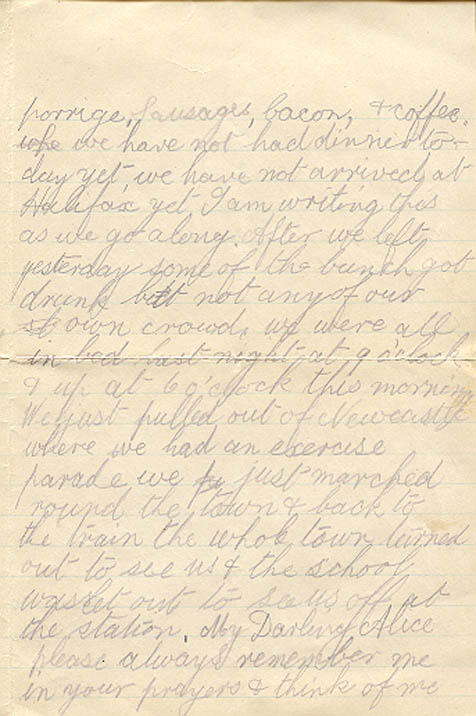 porrige, Sausages, bacon, & coffee.
we have not had dinner to-
day yet, we have not arrived at
Halifax yet I am writing this
as we go along. After we left
yesterday some of the bunch got
drunk but not any of our
own crowd, we were all
in bed last night at 9 o'clock
& up at 6 o'clock this morning
We just pulled out of Newcastle
where we had an exercise
parade we just marched
round the town & back to
the train the whole town turned
out to see us & the school
was let out to see us off at
the station. My Darling Alice
please always remember me
in your prayers & think of me